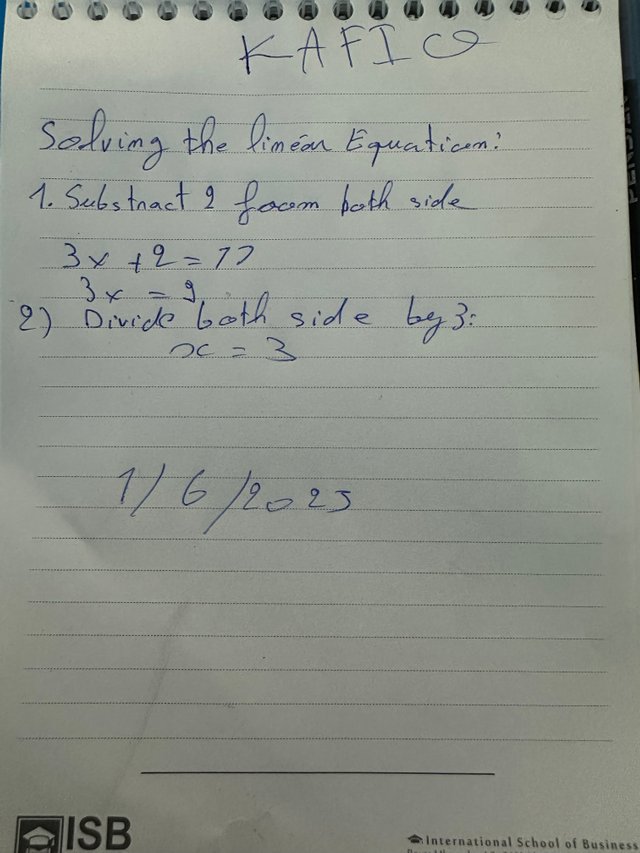 KAFICO
Solving the linéar Equation:
1. Substract 2 from both side
3x + 2 = 11
3x = 9
2) Divide both side by 3:
x = 3
1/6/2025
ISB
International School of Business